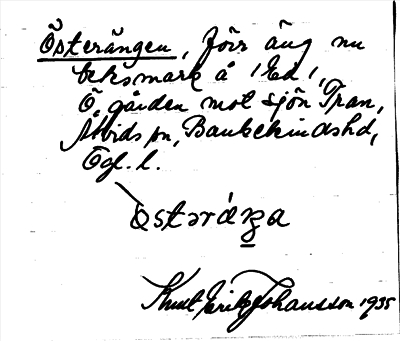 Österängen, förr äng nu
beksmark å 'Ed',
Ö gården mot sjön Tran,
Åtvids sn, Bankekindshd,
Ögl. l.
Östəráŋa
Knut Erik Johansson 1935